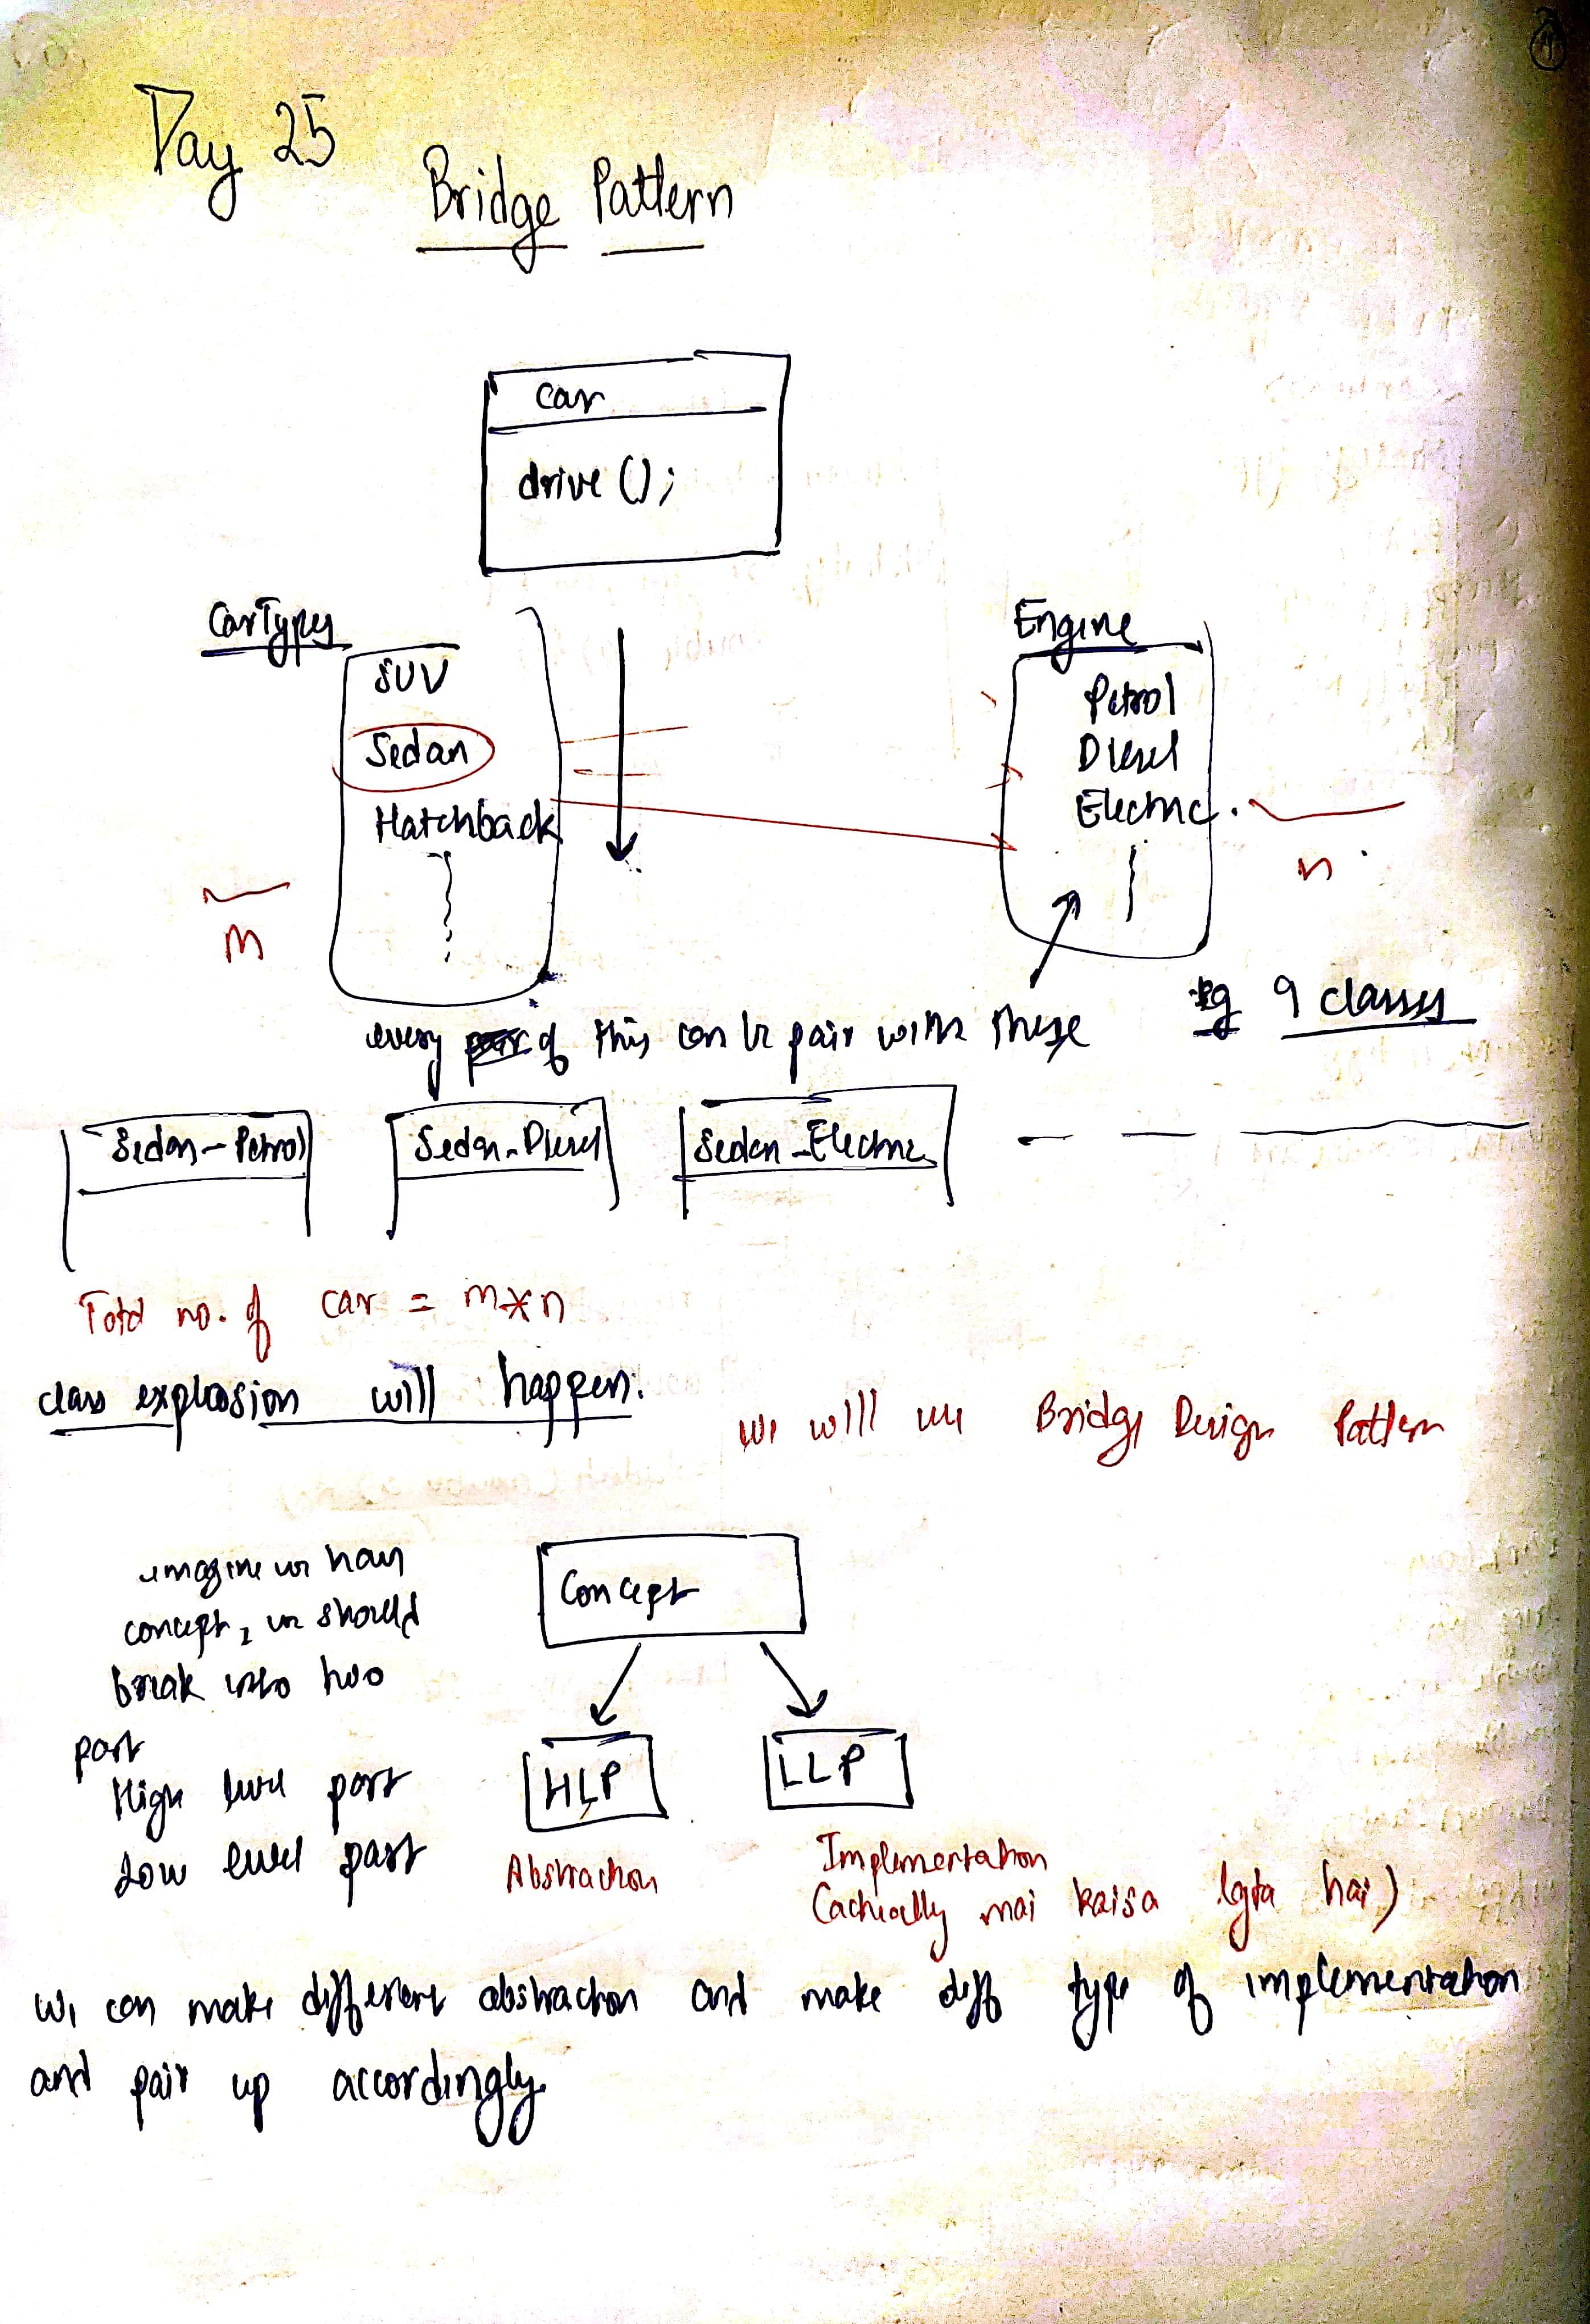 Day 25
Bridge Pattern
car
drive ();
CarTypes
SUV
Sedan
Hatchback
m
Engine
Petrol
Diesel
Electric
n
every of this can be pair with these
eg 9 classes
Sedan-Petrol
Sedan-Diesel
Sedan-Electric
Total no. of car = m*n
class explosion will happen.
we will use Bridge Design Pattern
imagine we have
concept, we should
break into two
part
High level part
Low level part
Concept
HLP
LLP
Abstraction
Implementation
(actually mai kaisa lgta hai)
We can make different abstraction and make diff type of implementation
and pair up accordingly.